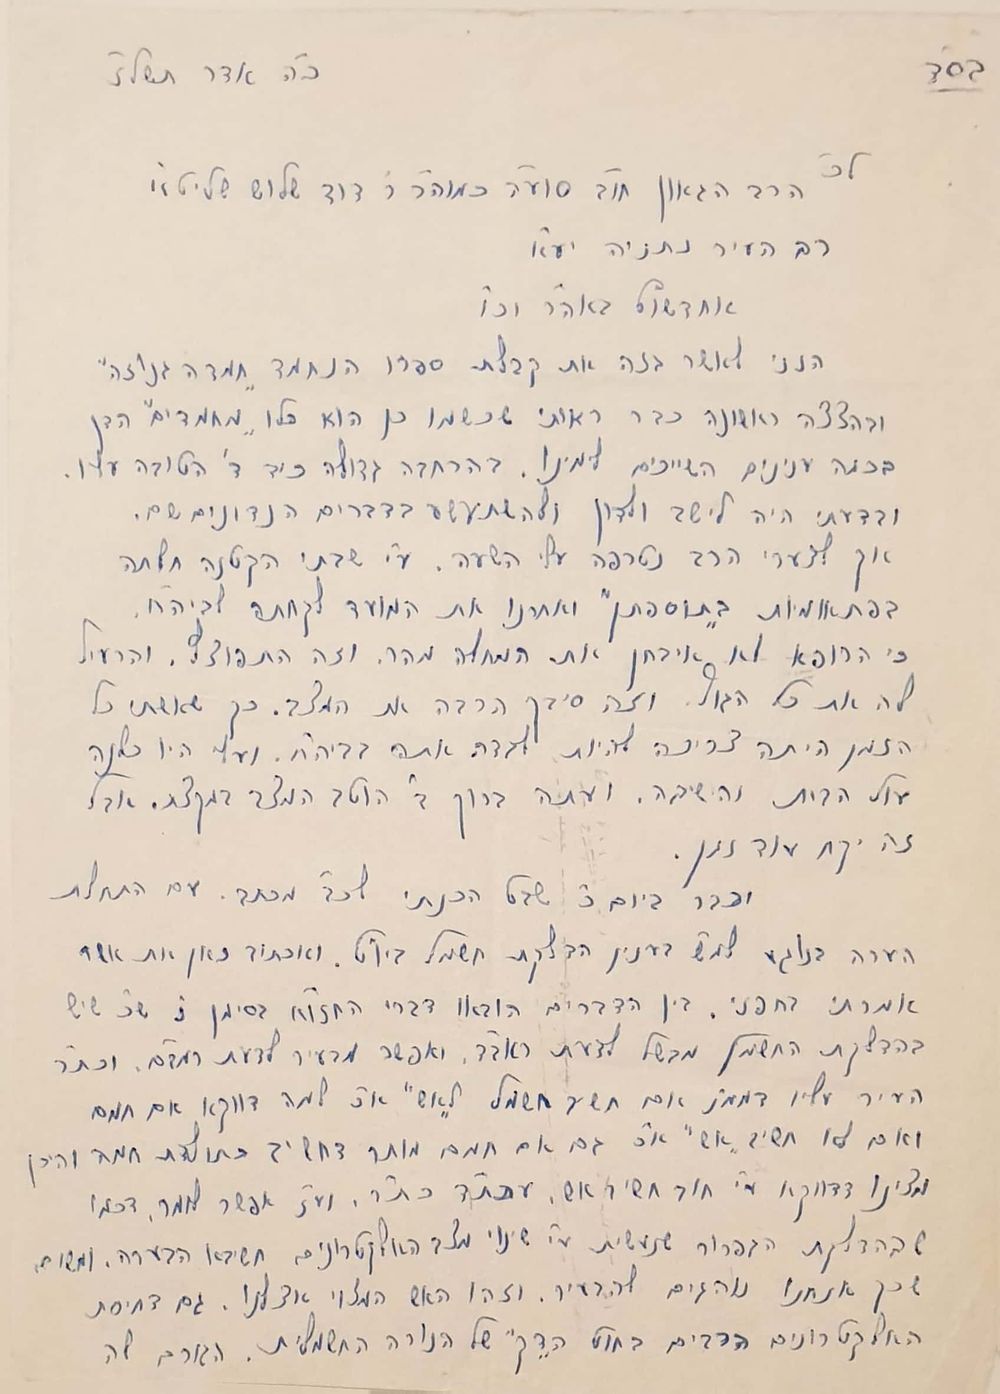 בס"ד
כ"ה אדר תשל"ג
לכ'
הרב הגאון חו"ב סוע"ה כמוהר"ר ר' דוד שלוש שליט"א
רב העיר נתניה יע"א
אחדשו"ט באה"ר וכו'
הנני לאשר בזה את קבלת ספרו הנחמד "חמדה גנוזה"
ובהצצה ראשונה כבר ראותי שכשמו כן הוא כלו "מחמדים" הדן
בכמה ענינים השייכים לימינו. בהרחבה גדולה כיד ד' הטובה עליו.
ובדעתי היה לישב ולדון ולהשתעשע בדברים הנדונים שם.
אך לצערי הרב נטרפה עלי השעה. ע"י שבתי הקטנה חלתה
בפתאומיות ב"תוספתן" ואחרנו את המועד לקחתה לביה"ח.
כי הרופא לא איבחן את המחלה מהר. וזה התפוצץ. והרעיל
לה את כל הגוף. וזה סיבך הרבה את המצב. כך שאשתי כל
הזמן היתה צריכה להיות לבדה אתה בביה"ח. ועלי היו כלנה
עול הבית והישיבה. ועתה ברוך ד' הוטב המצב במקצת. אבל
זה יקח עוד זמן.
וכבר ביום כ' שבט הכנתי לכב' מכתב. עם התחלת
הערה בנוגע למ"ש בענין הדלקת חשמל ביו"ט. ואכתוב כאן את אשר
אמרתי בחפזי. בין הדברים הובאו דברי החזו"א בסימן ג' שכ' שיש
בהדלקת החשמל מבשל לדעת ראב"ד. ואפשר מבעיר לדעת רמב"ם. וכת"ר
העיר עליו דממ"נ אם חשיב חשמל ל"אש" א"כ למה דווקא אם חמם
ואם לא חשיב "אש" א"כ גם אם חמם מותר דחשיב כתולדת חמה והיכן
מצינו דדווקא ע"י חום חשיב אש. עכת"ד כת"ר. ועז אפשר לומר, דכמו
שבהדלקת הגפרור שנעשית ע"י שינוי מצב האלקטרונים חשיבא הבערה. ומשום,
שכך אנחנו נוהגים להבעיר. וזהו האש המצוי אצלנו. גם דחיסת
האלקטרונים הרבים בחוט ה"דק" של הנורה החשמלית. הגורם לה